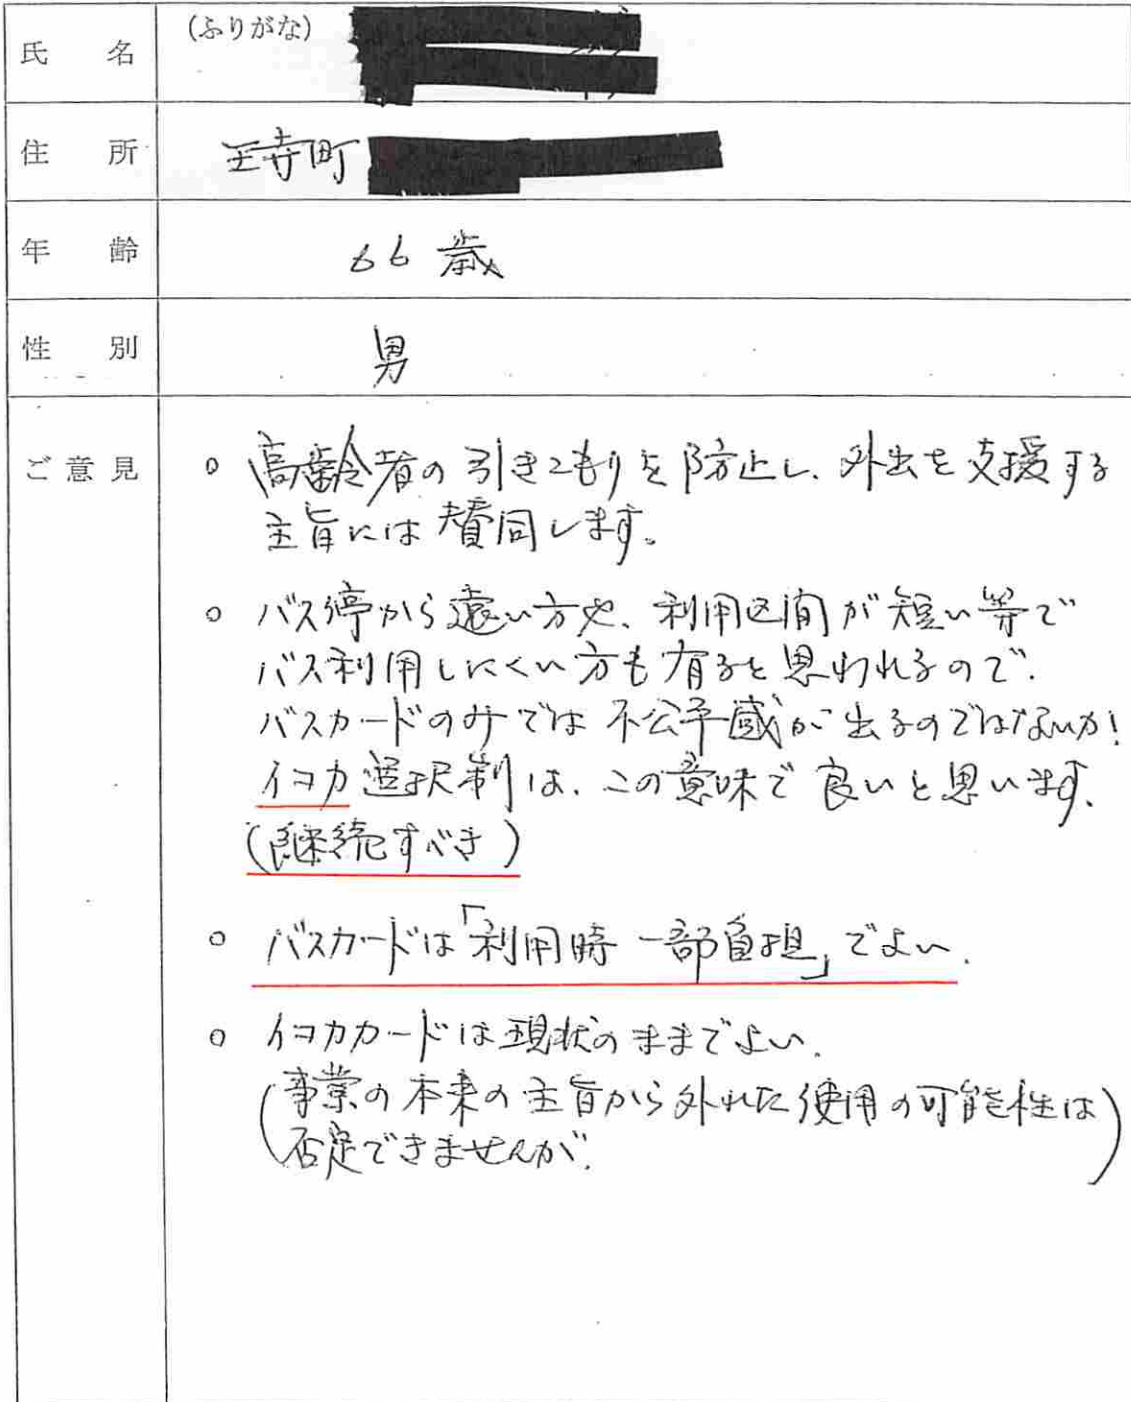 氏名 (ふりがな)
住所 王寺町
年齢 66歳
性別 男
ご意見
○ 高齢者の引きこもりを防止し、外出を支援する
主旨には賛同します。
○ バス停から遠い方や、利用区間が短い等で
バス利用しにくい方も有ると思われるので、
バスカードのみでは不公平感が出るのではないか!
イコカ選択制は、この意味で良いと思います。
(継続すべき)
○ バスカードは「利用時一部負担」でよい。
○ イコカカードは現状のままでよい。
(事業の本来の主旨から外れた使用の可能性は
否定できませんが。)